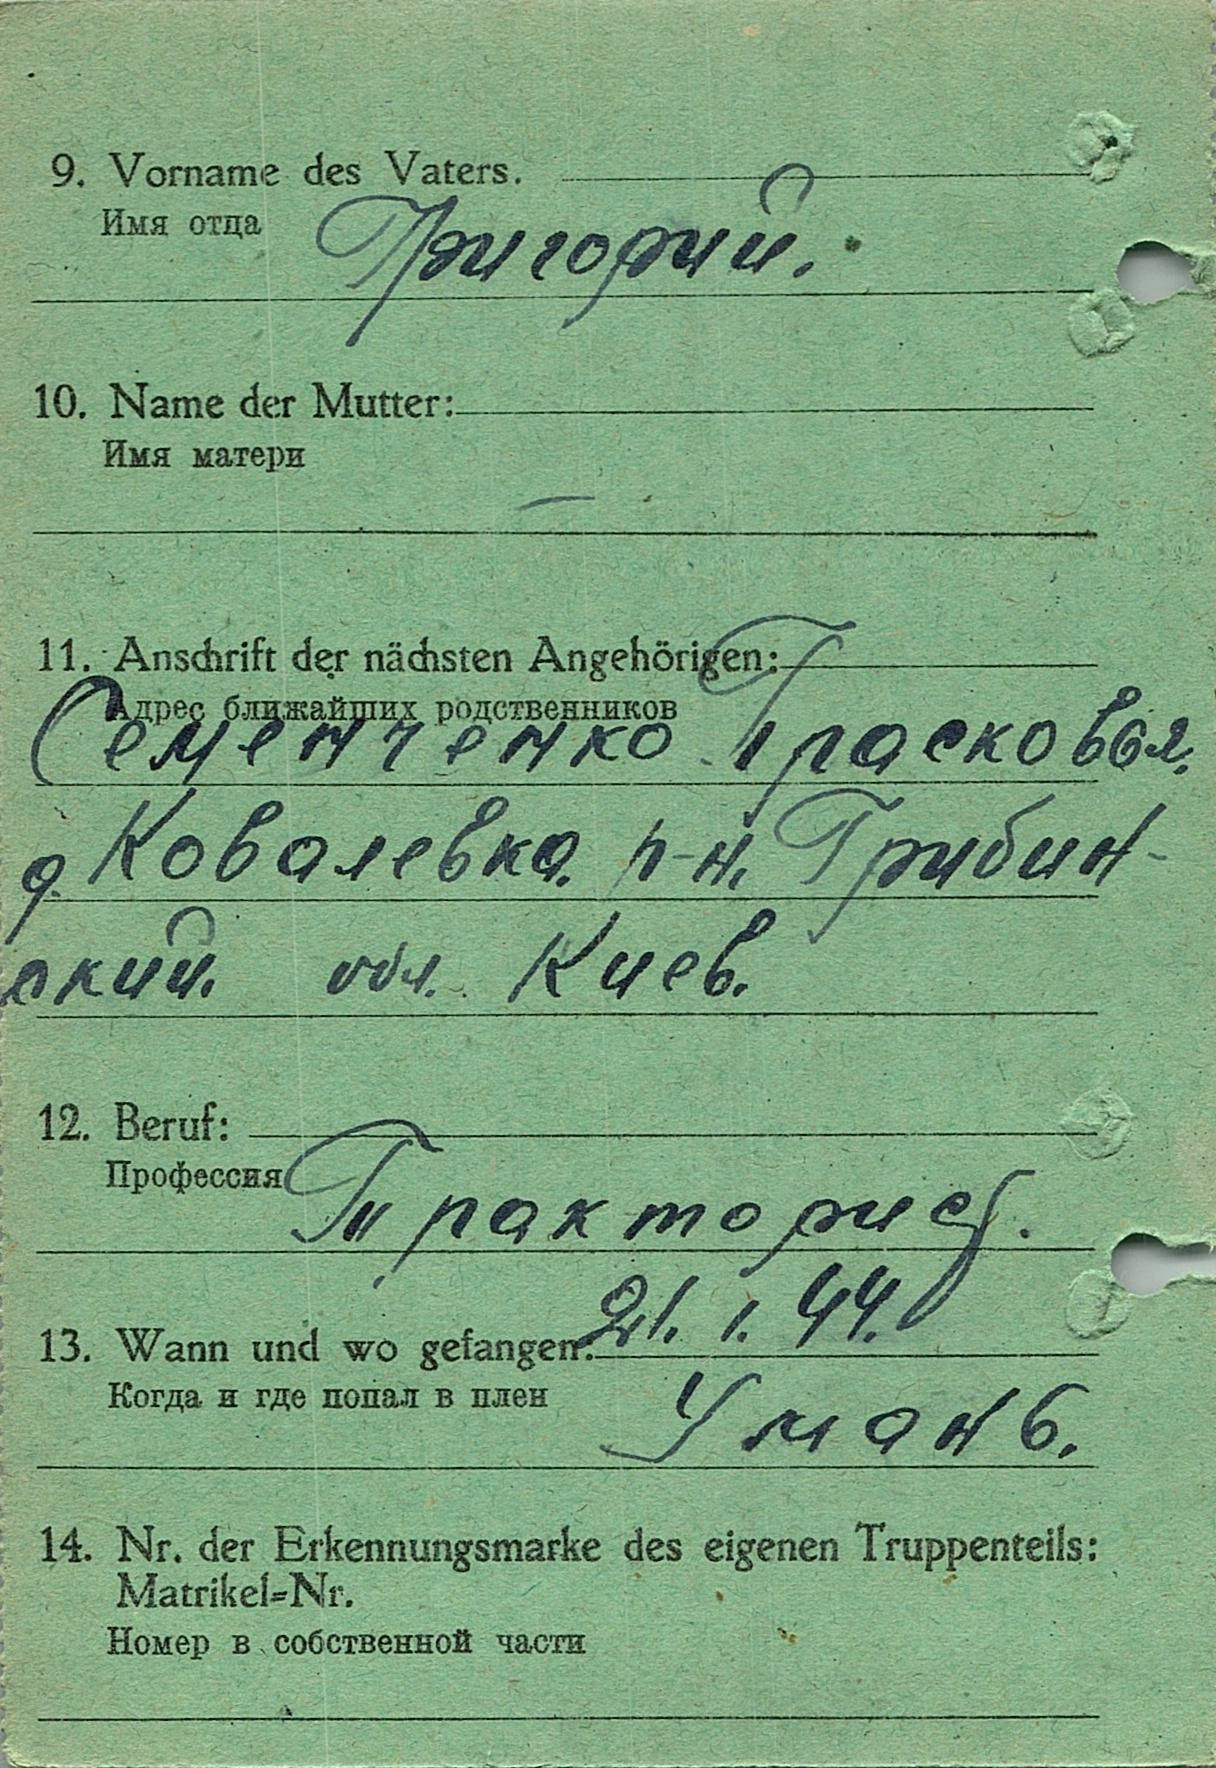 9. Vorname des Vaters.
Имя отца Григорий.
10. Name der Mutter:
Имя матери
—
11. Anschrift der nächsten Angehörigen:
Адрес ближайших родственников
Семенченко Прасковья.
д. Ковалевка. р-н, Грибин-
ский. обл. Киев.
12. Beruf:
Профессия Тракторист.
13. Wann und wo gefangen: 21. 1. 44.
Когда и где попал в плен Умань.
14. Nr. der Erkennungsmarke des eigenen Truppenteils:
Matrikel=Nr.
Номер в собственной части